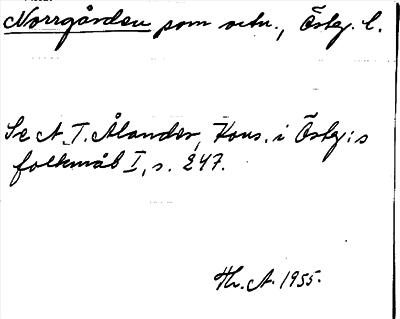 Norrgården som ortn., Östg. l.
Se A. T. Ålander, Kons. i Östg:s
folkmål I, s. 247.
Hr. A. 1955.